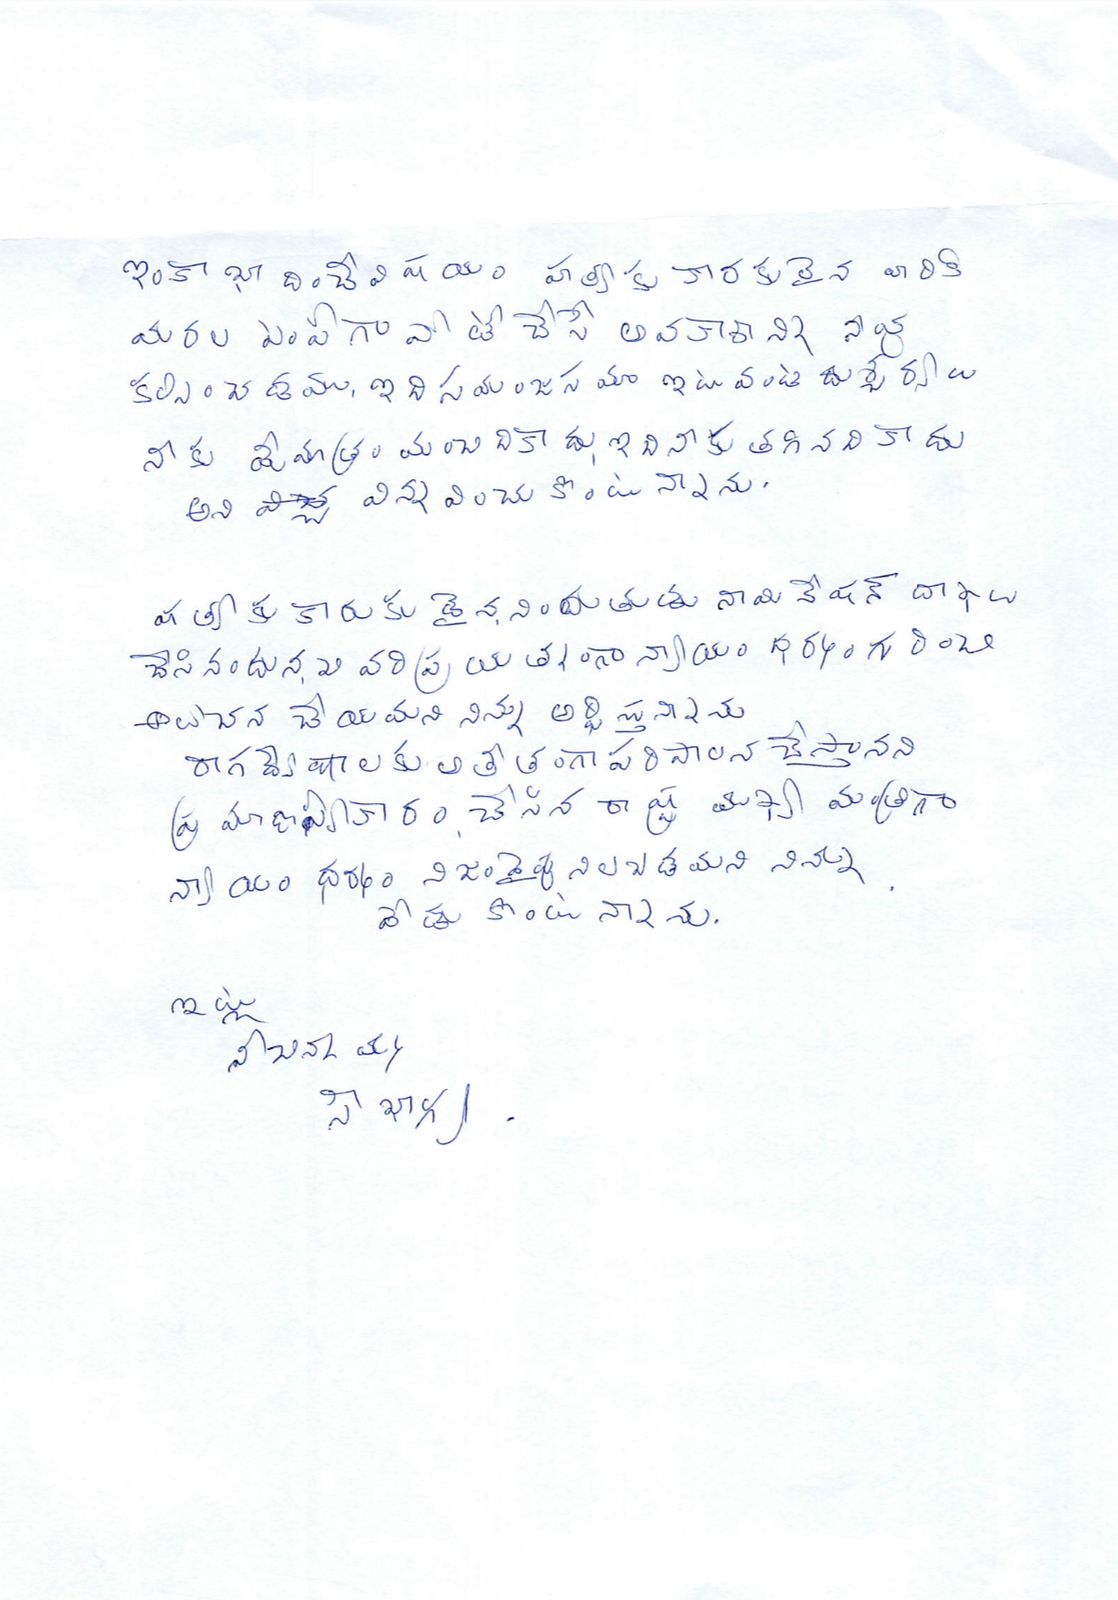 ఇంకా బాధించే విషయం హత్యకు కారకులైన వారికి
మరల ఎంపీగా పోటీ చేసే అవకాశాన్ని నీవు
కల్పించడము, ఇది సమంజసమా ఇటువంటి దుశ్చర్యలు
నీకు ఏమాత్రం మంచిదికాదు, ఇది నీకు తగినది కాదు
అని విన్నవించుకొంటున్నాను.
హత్యకు కారుకుడైన, నిందుతుడు నామినేషన్ దాఖలు
చేసినందున, చివరి ప్రయత్నంగా న్యాయం ధర్మం గురించి
ఆలోచన చేయమని నిన్ను అర్థిస్తున్నాను
రాగ ద్వేషాలకు అతీతంగా పరిపాలన చేస్తానని
ప్రమాణస్వీకారం, చేసిన రాష్ట్ర ముఖ్య మంత్రిగా
న్యాయం ధర్మం నిజంవైపు నిలబడమని నిన్ను
వేడుకొంటున్నాను.
ఇట్లు
సౌభాగ్య.